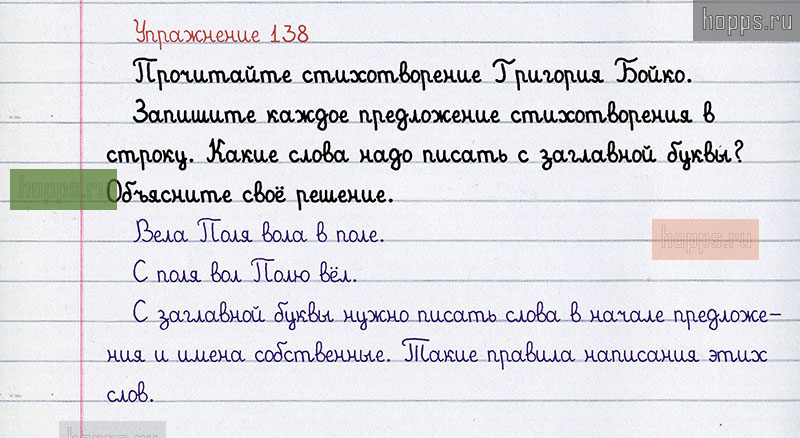 hopps.ru
Упражнение 138
Прочитайте стихотворение Григория Бойко.
Запишите каждое предложение стихотворения в
строку. Какие слова надо писать с заглавной буквы?
hopps.ru
Объясните своё решение.
Вела Поля вола в поле.
hopps.ru
С поля вол Полю вёл.
С заглавной буквы нужно писать слова в начале предложе-
ния и имена собственные. Такие правила написания этих
слов.
hopps.ru